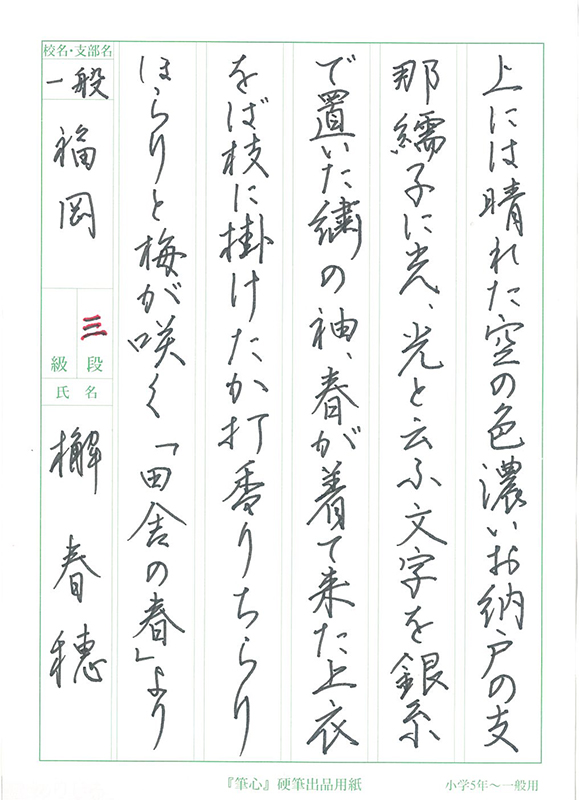 上には晴れた空の色濃いお納戸の支
那繻子に光、光と云ふ文字を銀糸
で置いた繍の袖、春が着て来た上衣
をば枝に掛けたか打香りちらり
ほらりと梅が咲く「田舎の春」より
校名・支部名
一般
福岡
三
段
級
氏名
檞 春穂
『筆心』硬筆出品用紙
小学5年〜一般用